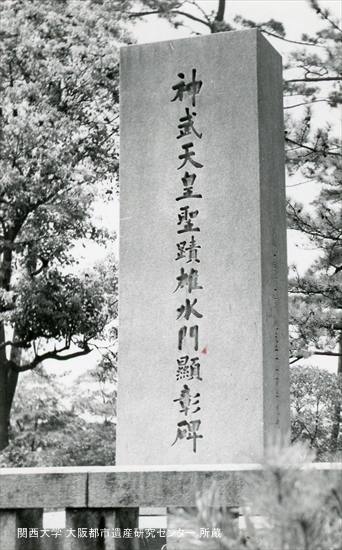 神武天皇聖蹟雄水門顯彰碑
関西大学 大阪都市遺産研究センター 所蔵